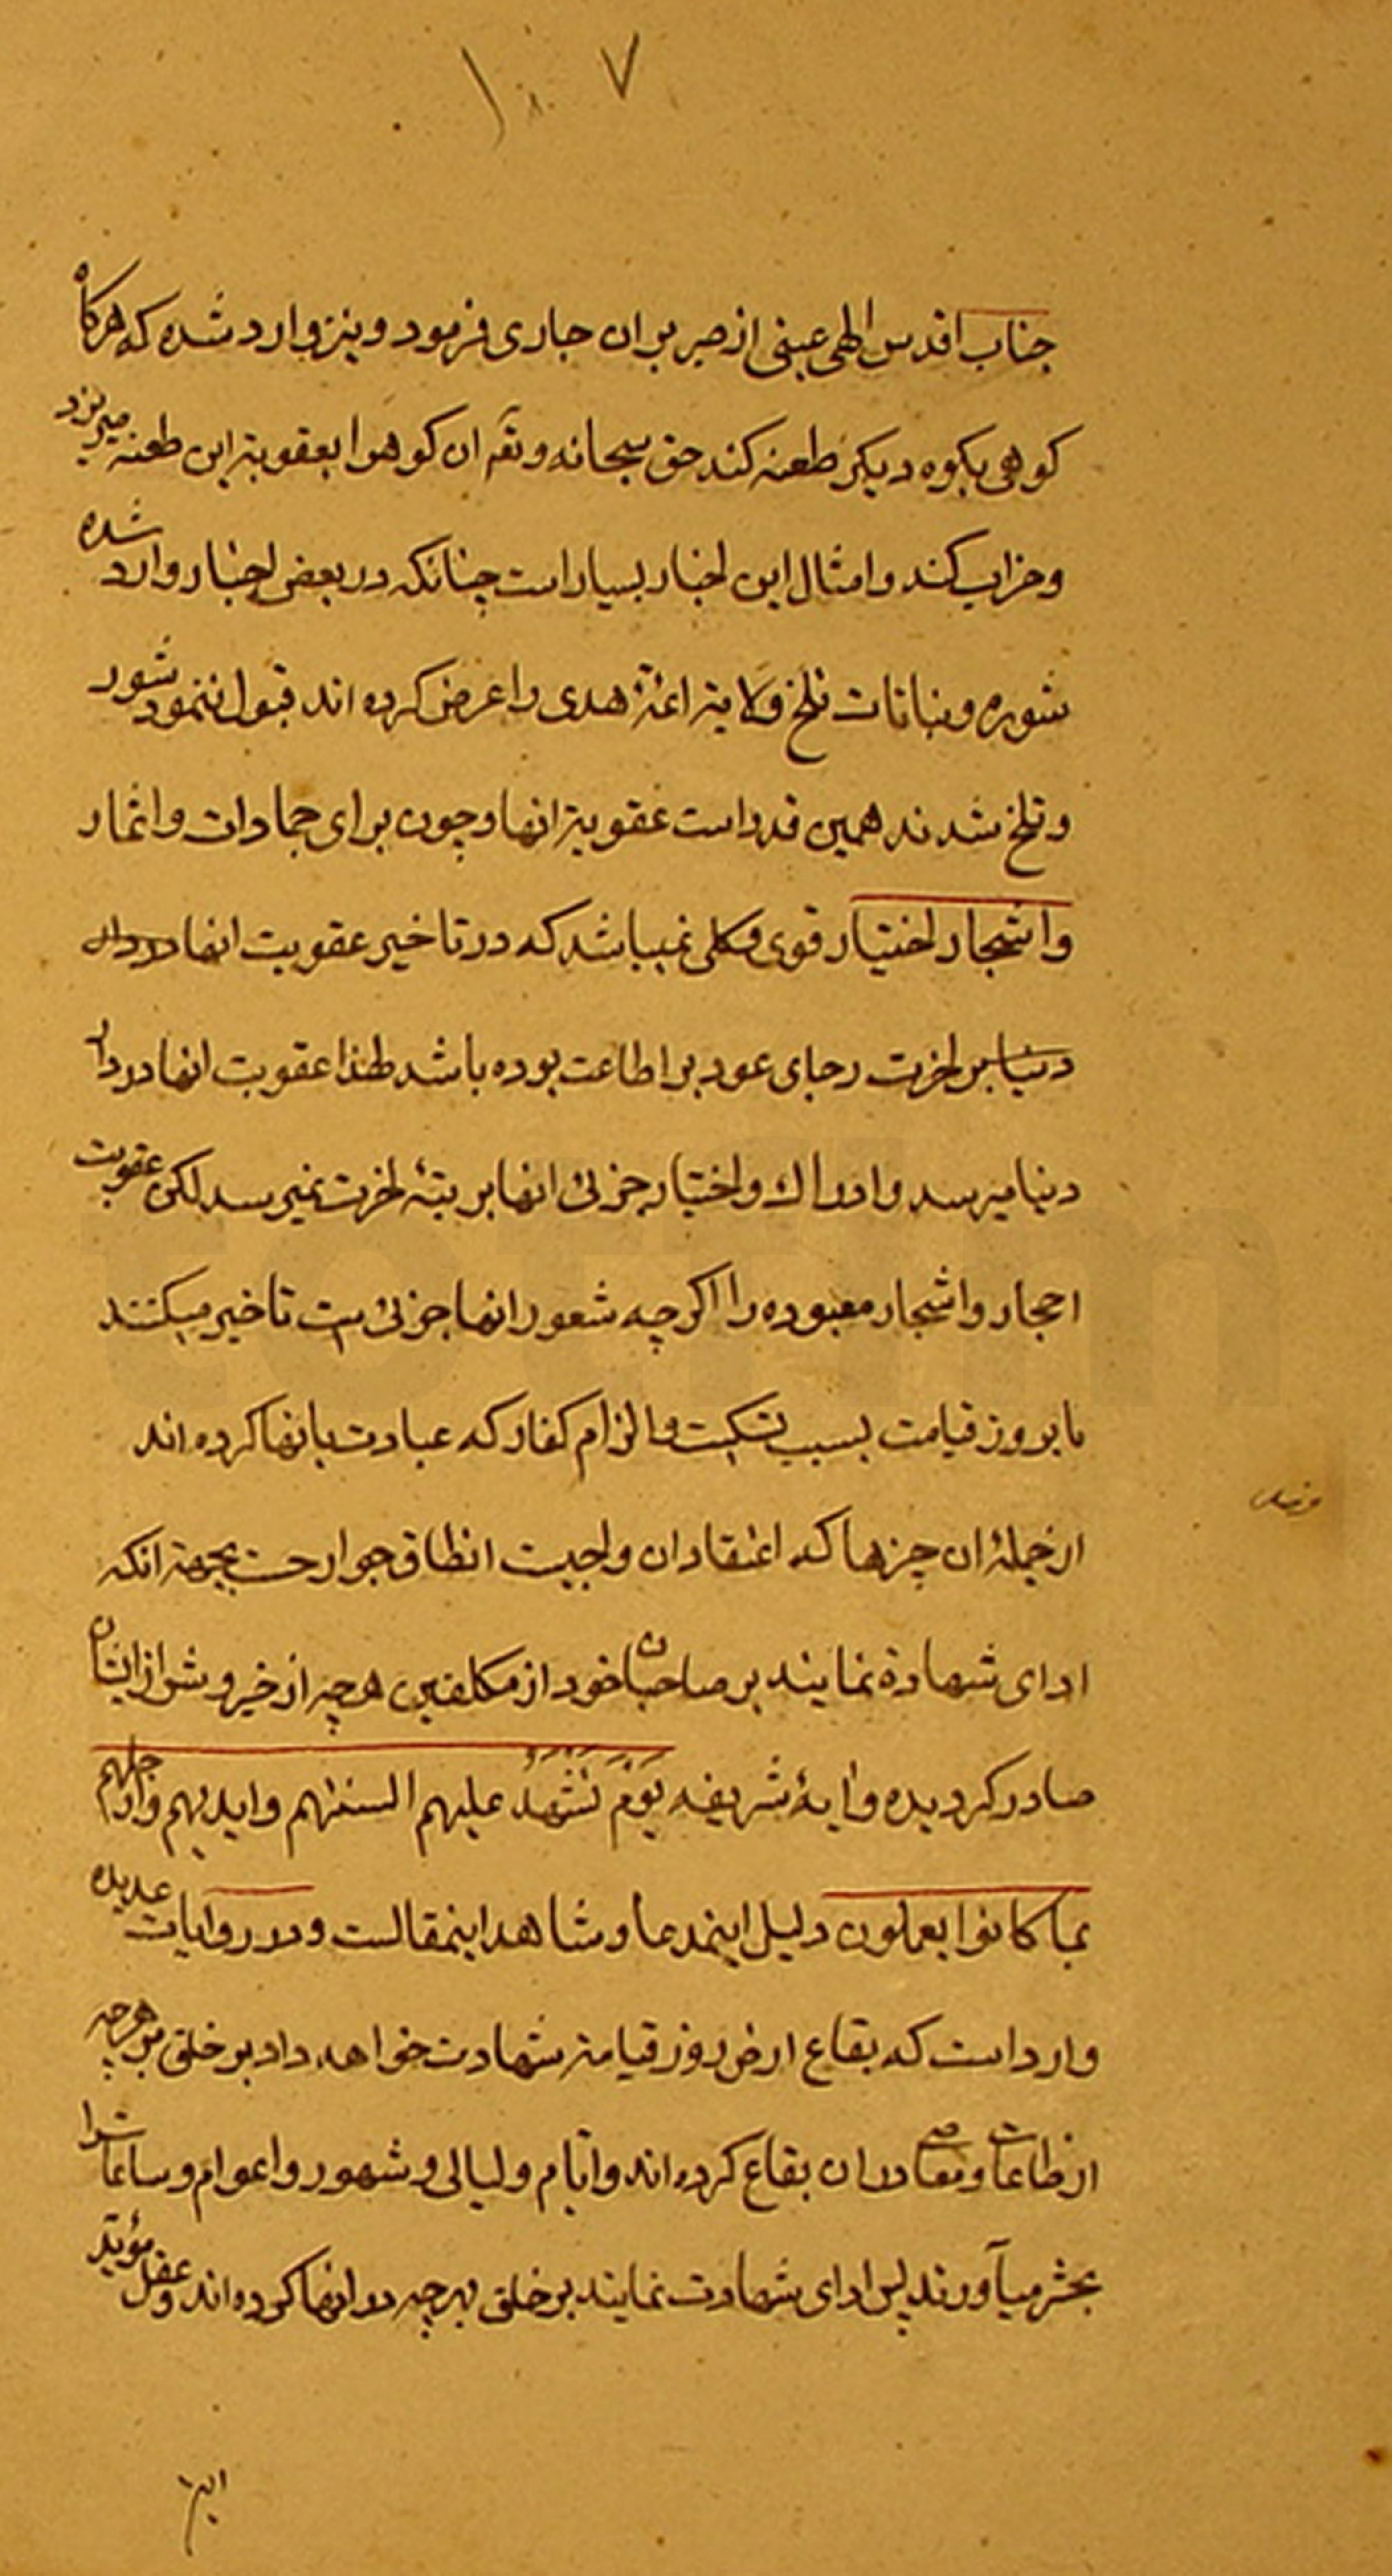 ۱۰۷
جناب اقدس الهی عینی از صبر بران جاری فرمود و نیز وارد شده که هرکاه
کوهی بکوه دیکر طعنه کند حق سبحانه و تعم ان کوه را بعقوبة این طعنه میریزد
و خراب کند و امثال این اخبار بسیار است چنانکه در بعض اخبار وارد شده
شوره و نباتات تلخ ولایة ائمۀ هدی را عرض کرده اند قبول ننمود شور
و تلخ شدند همین قدر است عقوبة انها و چون برای جمادات و اثمار
و اشجار اختیار قوی و کلی نمیباشد که در تاخیر عقوبت انها
دنیا باخرت رجای عود بر اطاعت بوده باشد لهذا عقوبت انها در دار
دنیا میرسد و ادراک و اختیار جزئی انها برتبۀ اخرت نمیرسد لکن عقوبت
احجار و اشجار معبوده را اکرچه شعور انها جزئی ست تاخیر میکنند
تا بروز قیامت بسبب تبکیت و الزام کفار که عبادت بانها کرده اند
از جملۀ ان چیزها که اعتقاد ان واجبست انطاق جوارحست بجهة انکه
ادای شهادة نمایند بر صاحبان خود از مکلفین هرچه از خیر و شر از ایشان
صادر کردیده و آیۀ شریفه یَوْمَ تَشْهَدُ علیهم السنتهم و ایدیهم و ارجلهم
بما کانوا یعملون دلیل اینمدعا و شاهد اینمقالست و در روایات عدیده
وارد است که بقاع ارض روز قیامة شهادت خواهد داد بر خلق بر هرچه
از طاعات و معاصی در ان بقاع کرده اند و ایّام و لیالی و شهور و اعوام و ساعات را
بحشر میآورند پس ادای شهادت نمایند بر خلق بهرچه در انها کرده اند و عقل مؤید